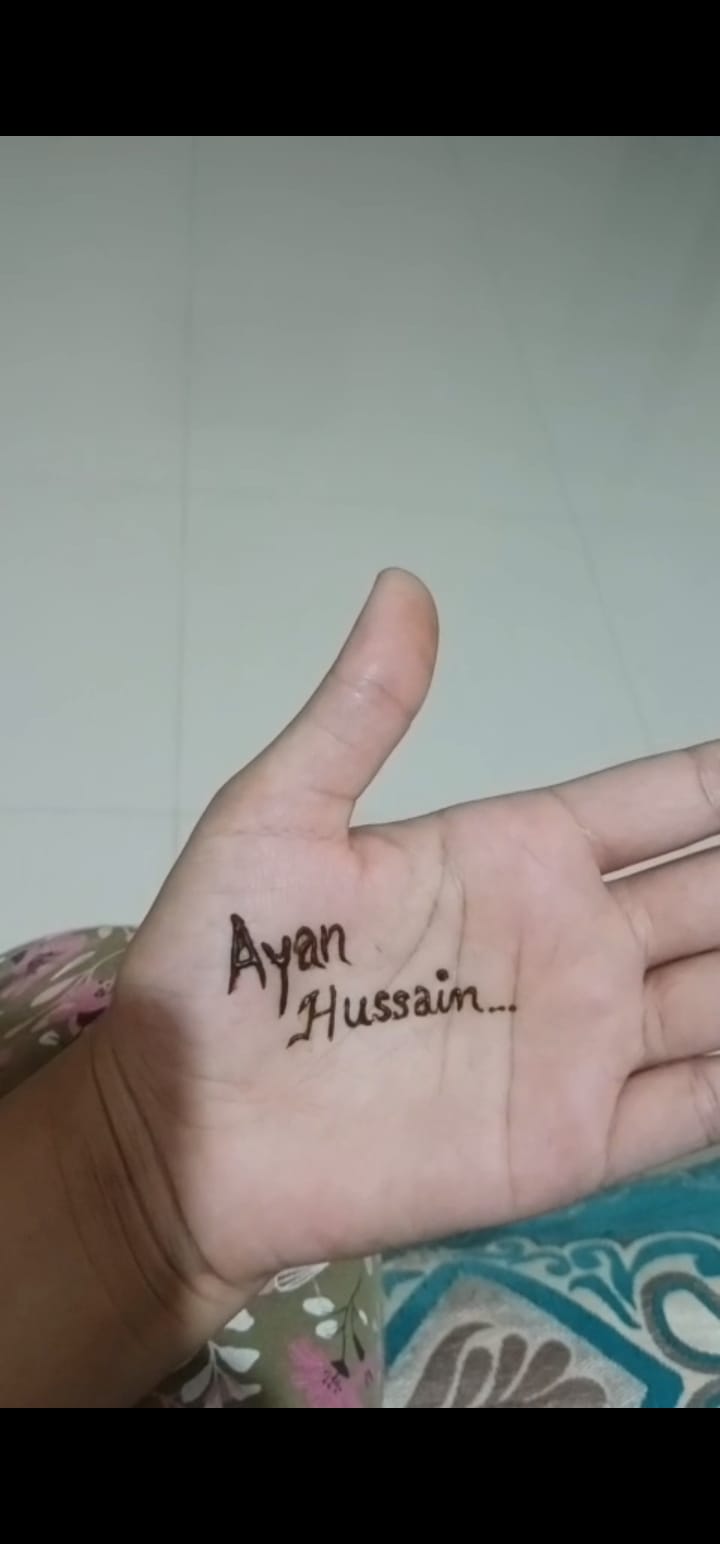 Ayan
Hussain...